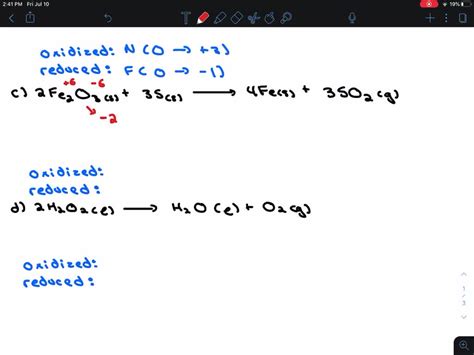 2:41 PM Fri Jul 10 19%
oxidized: N (0 → +3)
reduced: F (0 → -1)
+6 -6
c) 2Fe2O3(s) + 3S(s) → 4Fe(s) + 3SO2(g)
-2
oxidized:
reduced:
d) 2H2O2(l) → H2O(l) + O2(g)
oxidized:
reduced:
1
3